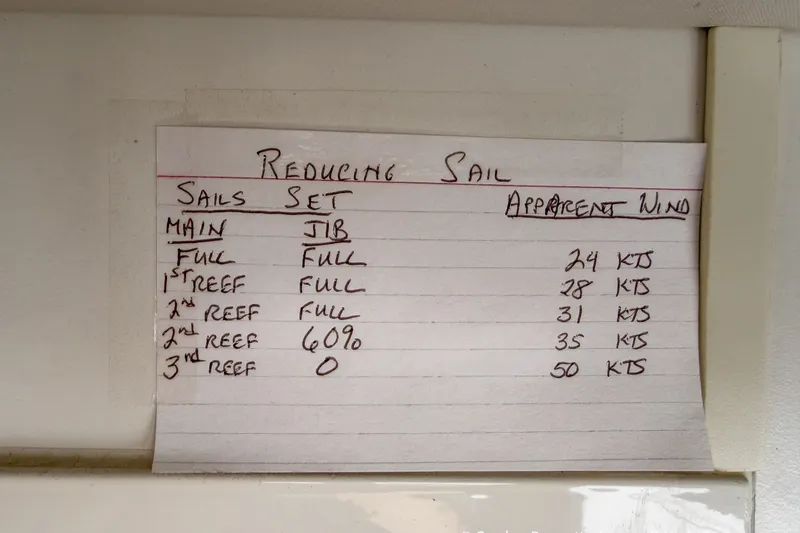 REDUCING SAIL
SAILS SET APPARENT WIND
MAIN JIB
FULL FULL 24 KTS
1ST REEF FULL 28 KTS
2nd REEF FULL 31 KTS
2nd REEF 60% 35 KTS
3nd REEF 0 50 KTS